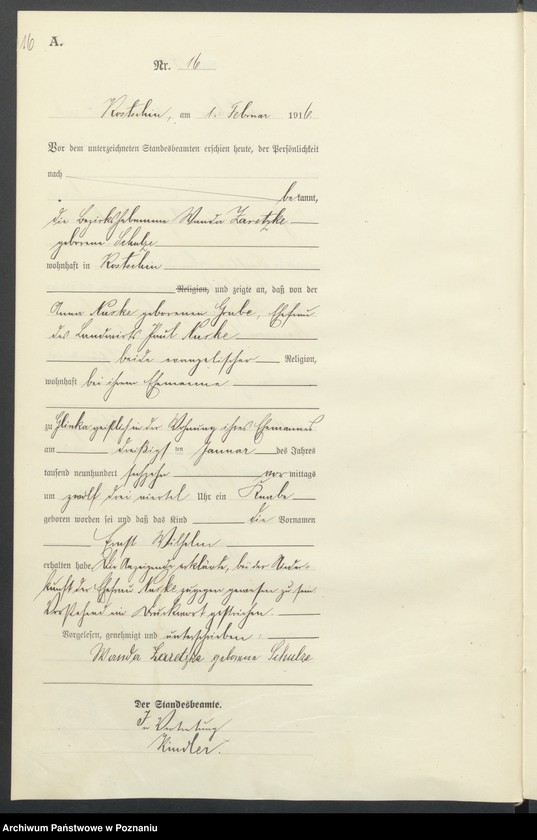 16
A.
Nr. 16
Kostschin, am 1. Februar 1916
Vor dem unterzeichneten Standesbeamten erschien heute, der Persönlichkeit
nach
bekannt,
die Bezirkshebamme Wanda Zaretzke
geborene Schulze
wohnhaft in Kostschin
Religion, und zeigte an, daß von der
Anna Kuske geborenen Grabe, Ehefrau
des Landwirts Paul Kuske
beide evangelischer Religion,
wohnhaft bei ihrem Ehemanne
zu Glinka in der Wohnung ihres Ehemannes
am dreißigsten Januar des Jahres
tausend neunhundert sechzehn vormittags
um zwölf drei viertel Uhr ein Knabe
geboren worden sei und daß das Kind die Vornamen
Ernst Wilhelm
erhalten habe. Die Anzeigende erklärte, bei der Nieder-
kunft der Ehefrau Kuske zugegen gewesen zu sein
Vorstehend ein Druckwort gestrichen.
Vorgelesen, genehmigt und unterschrieben:
Wanda Zaretzke geborene Schulze
Der Standesbeamte.
In Vertretung
Kindler.
Archiwum Państwowe w Poznaniu